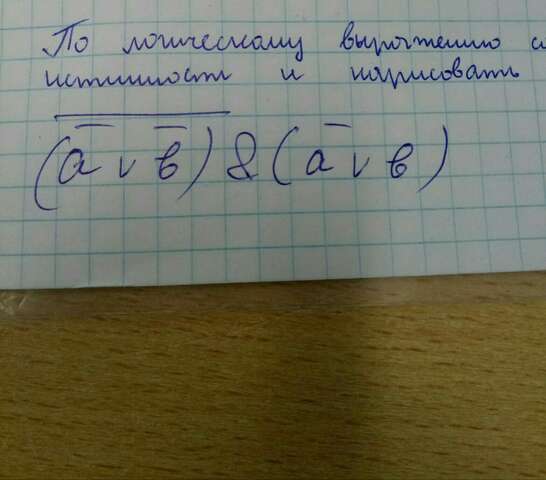 По логическому выражению с
истинност и нарисовать
(a̅ v b̅)̅ & (a̅ v b)